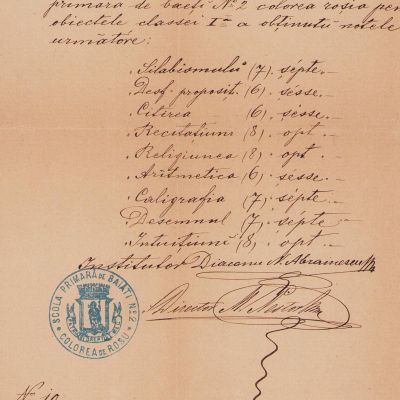 primara de baeți Nº 2 colorea rosia pen
obiectele classei Iª a obținutŭ notele
următóre:
Silabismulŭ (7) șépte.
Desf. proposit. (6) șésse.
Citirea (6) șésse.
Recitațiuni (8) opt.
Religiunea (8) opt.
Aritmetica (6) șésse.
Caligrafia (7) șépte
Desemnul (7) șépte
Intuițiuni (8) opt.
Institutor Diaconu N. Abramescu
Director
SCOLA PRIMARĂ DE BAIATI Nº 2
COLOREA DE ROSU
No 10